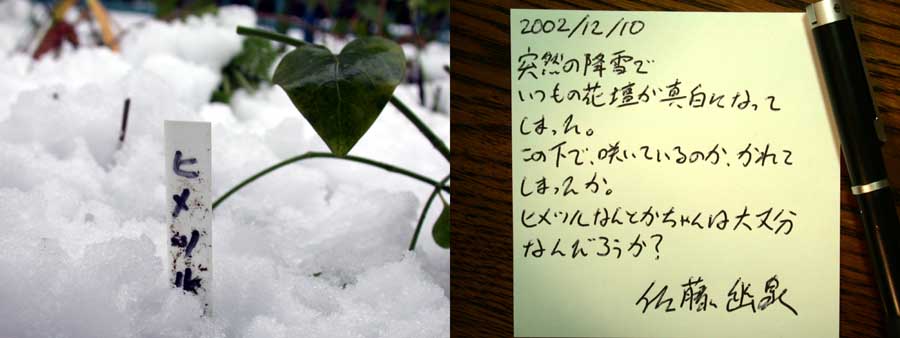 ヒメツル
2002/12/10
突然の降雪で
いつもの花壇が真白になって
しまった。
この下で、咲いているのか、かれて
しまったか。
ヒメツルなんとかちゃんは大丈分
なんだろうか?
佐藤 幽泉